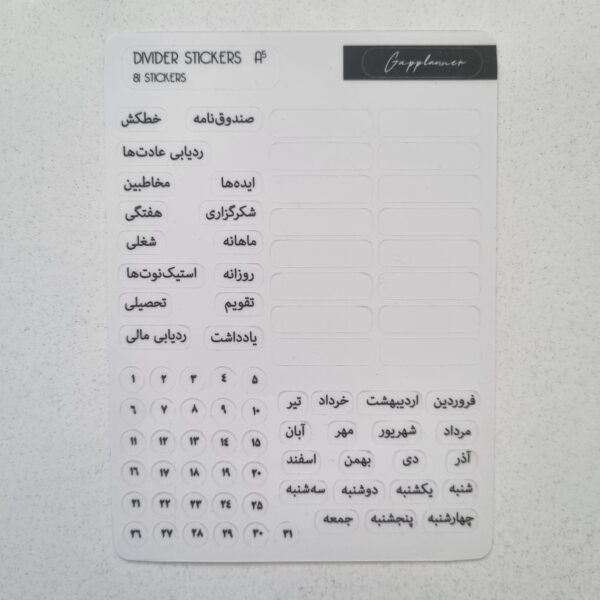 DIVIDER STICKERS A5
81 STICKERS
Gapplanner
صندوق‌نامه خط‌کش
ردیابی عادت‌ها
ایده‌ها مخاطبین
شکرگزاری هفتگی
ماهانه شغلی
روزانه استیک‌نوت‌ها
تقویم تحصیلی
یادداشت ردیابی مالی
۱ ۲ ۳ ۴ ۵
۶ ۷ ۸ ۹ ۱۰
۱۱ ۱۲ ۱۳ ۱۴ ۱۵
۱۶ ۱۷ ۱۸ ۱۹ ۲۰
۲۱ ۲۲ ۲۳ ۲۴ ۲۵
۲۶ ۲۷ ۲۸ ۲۹ ۳۰ ۳۱
فروردین اردیبهشت خرداد تیر
مرداد شهریور مهر آبان
آذر دی بهمن اسفند
شنبه یکشنبه دوشنبه سه‌شنبه
چهارشنبه پنجشنبه جمعه